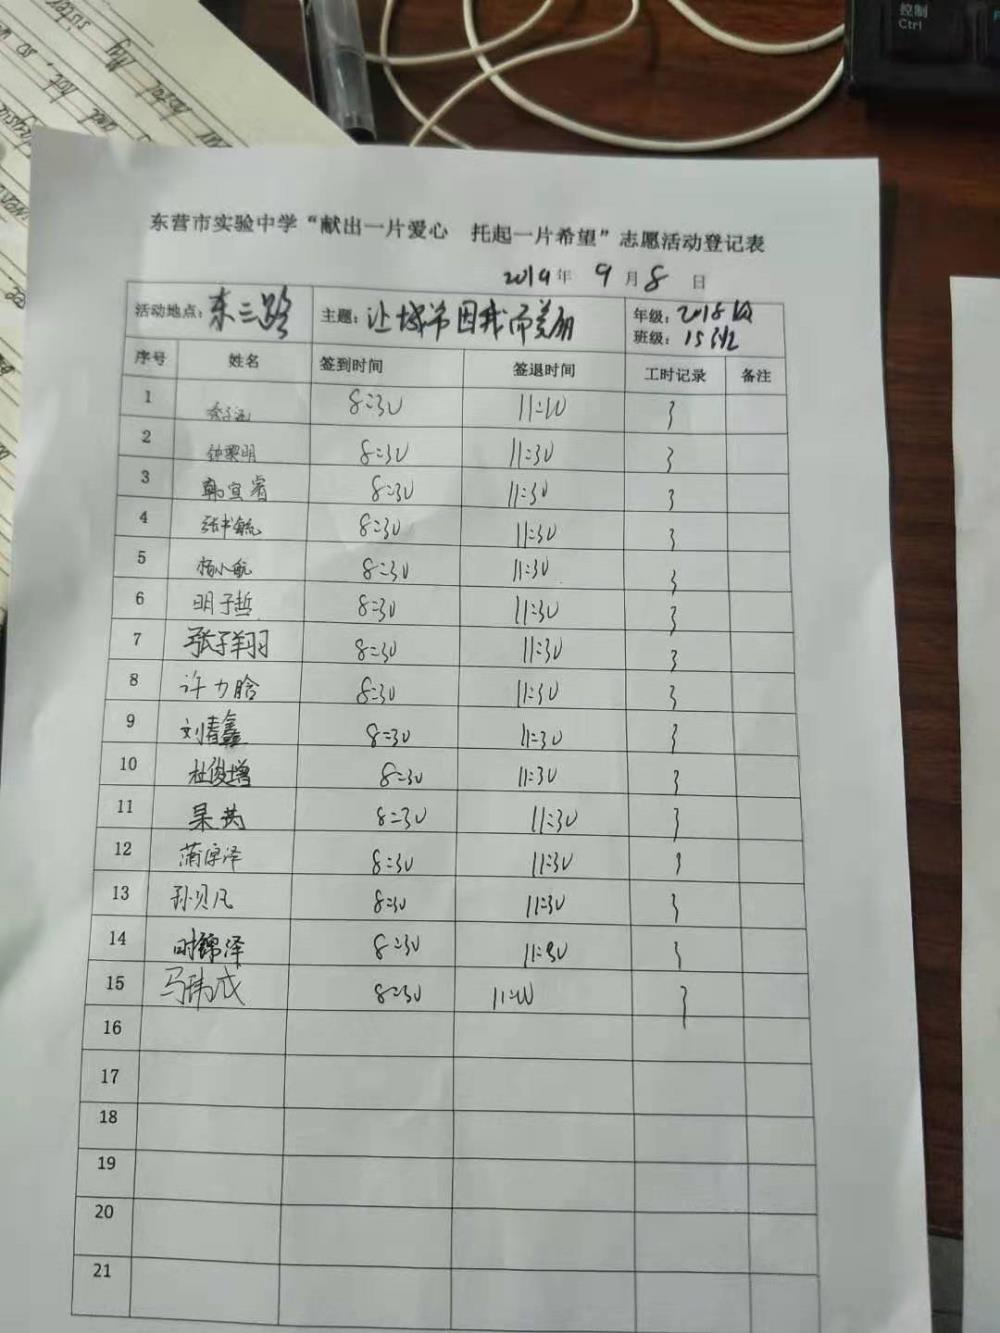 控制
Ctrl
东营市实验中学“献出一片爱心 托起一片希望”志愿活动登记表
2019年 9月8日
活动地点：东三路 主题：让城市因我而美丽 年级：2018级
班级：15班
序号 姓名 签到时间 签退时间 工时记录 备注
1 8:30 3
2 钟黎明 8:30 11:30 3
3 韩宜睿 8:30 11:30 3
4 8:30 11:30 3
5 杨小航 8:30 11:30 3
6 明子哲 8:30 11:30 3
7 张子翔 8:30 11:30 3
8 许力晗 8:30 11:30 3
9 刘春鑫 8:30 11:30 3
10 杜俊增 8:30 11:30 3
11 8:30 11:30 3
12 蒲淳泽 8:30 11:30 3
13 孙贝凡 8:30 11:30 3
14 时锦泽 8:30 11:30 3
15 马玮成 8:30 3
16
17
18
19
20
21